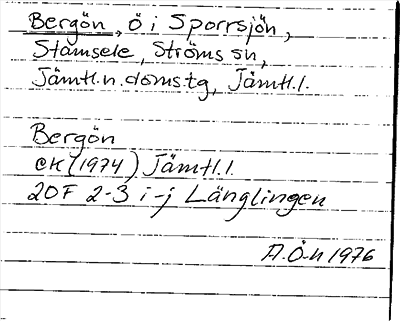 Bergön, ö i Sporrsjön,
Stamsele, Ströms sn,
Jämtl.n.doms.tg, Jämtl.l.
Bergön
EK (1974) Jämtl.l.
20F 2-3 i-j Länglingen
A.Ö-n 1976